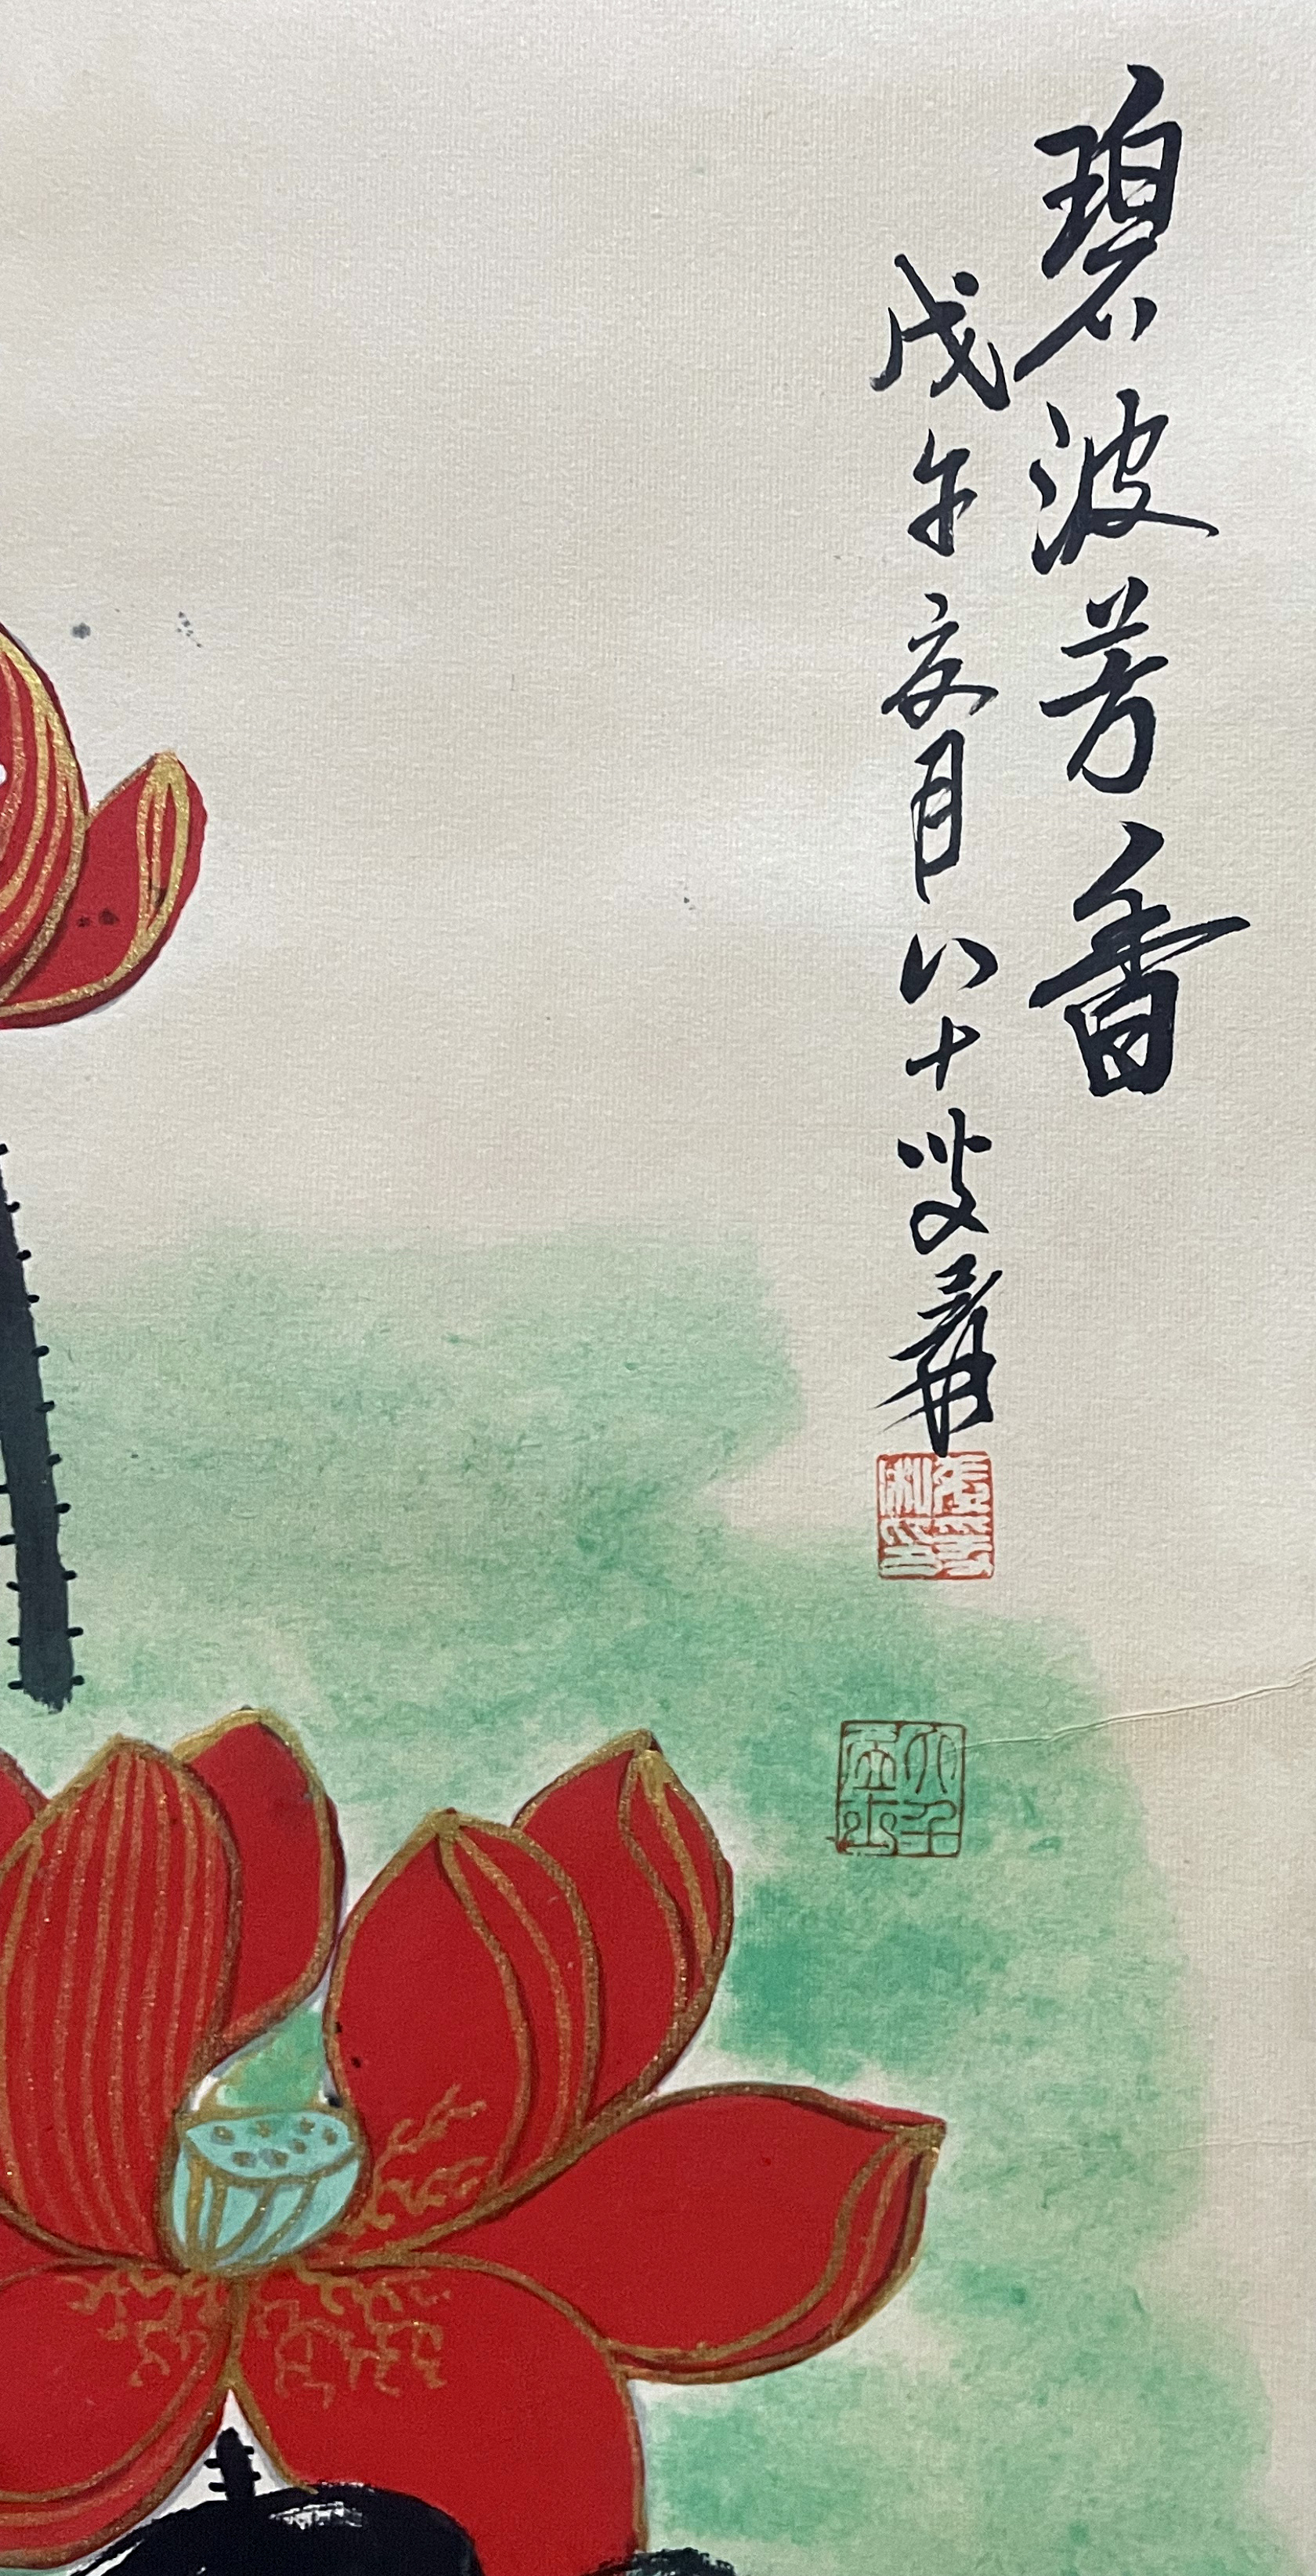 碧波芳香
戊午亥月八十叟爰